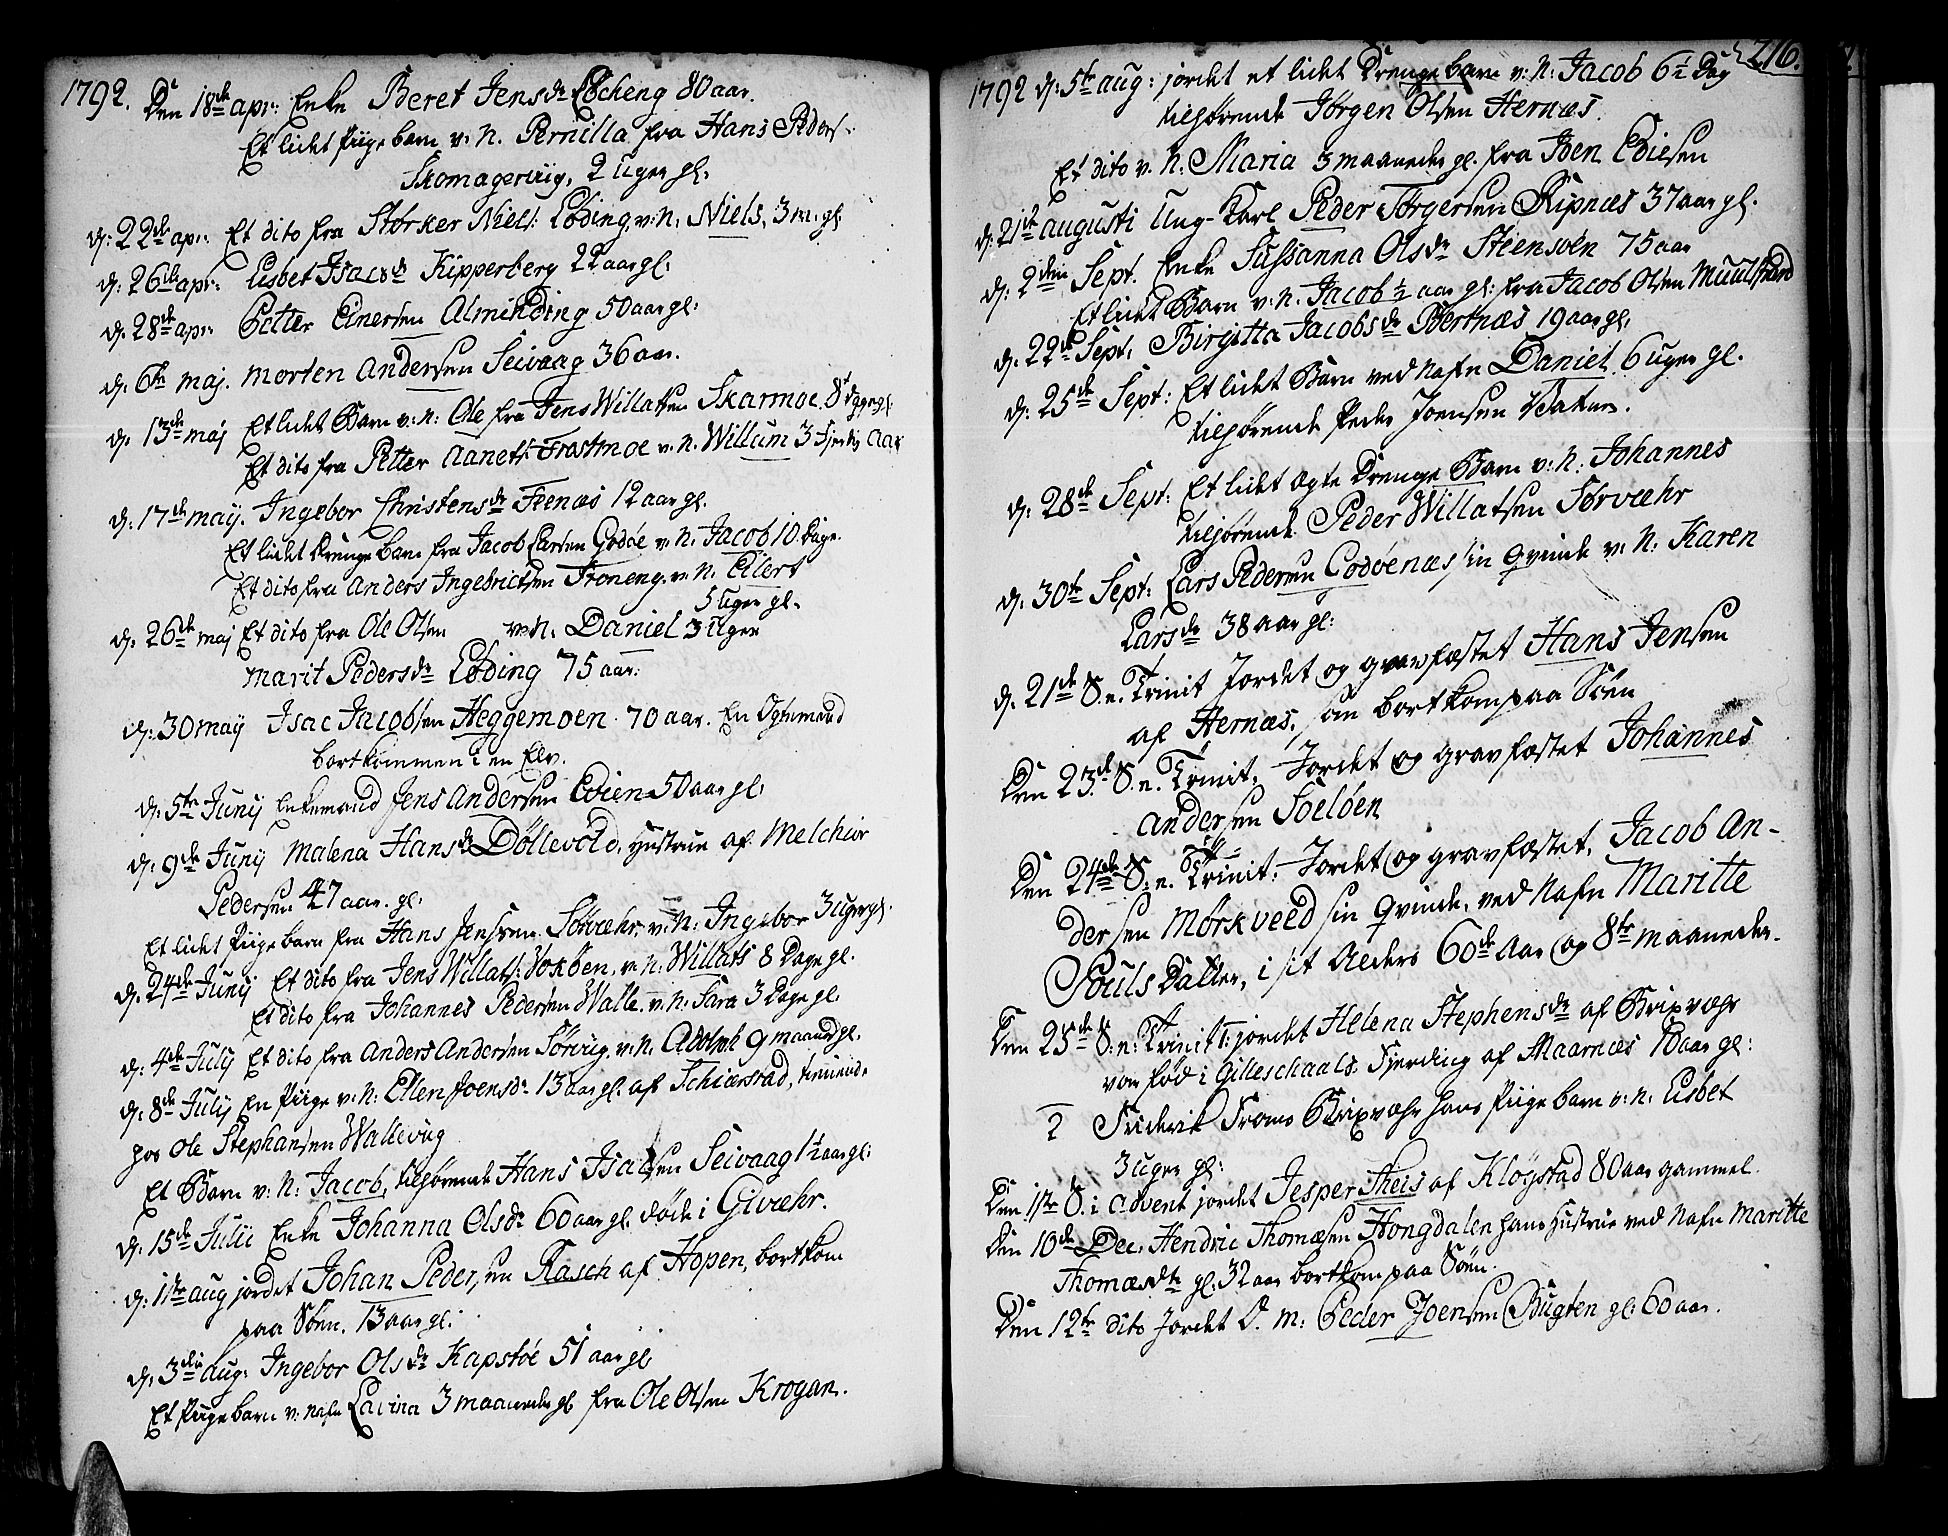 1792. Den 18de apr: Enke Beret Jensdr Løcheng 80 aar.
Et lidet Piige barn v: N. Pernilla fra Hans Peders:
Skomagerviig, 2 Uger gl.
d: 22de apr: Et dito fra Størker Niels: Løding, v: N. Niels, 3 m: gl
d: 26de apr: Lisbet Isacsdr Kipperberg 22 aar gl:
d: 28de apr: Petter Einersen Alminding 50 aar gl:
d: 6te maj. Morten Andersen Seivaag 36 aar.
d: 13de maj Et lidet Barn v: N: Ole fra Jens Willatsen Skarmoe 8t Dage gl:
Et dito fra Petter Aanets: Trastmoe v. N. Willum 3 Fjerdig Aar
d: 17de maij. Ingebor Christensdr Fenæs 12 aar gl.
Et lidet Drenge barn fra Jacob Larsen Godøe v: N. Jacob 10 Dage.
Et dito fra Anders Ingebrictsen Troneng. v: N. Eilert
5 Uger gl.
d: 26de maj Et dito fra Ole Olsen v: N. Daniel 3 Uger
Marit Pedersdr Løding 75 aar.
d: 30 maij Isac Jacobsen Heggemoen 70 aar. En Egtemand
bortkommen i en Elv.
d: 5te Junij Enkemand Jens Andersen Evien 50 aar gl:
d: 9de Junij Malena Hansdr Döllevold, Hustrue af Melchior
Pedersen 47 aar. gl.
Et lidet Piige barn fra Hans Jensen Sørvæhr, v: N: Ingebor 3 Uger gl.
d: 24de Junij Et dito fra Jens Willats: Voxøen, v: N: Willats 8 Dage gl.
Et dito fra Johannes Pedersen Walle. v: N: Sara 3 Dage gl.
d: 4de Julij Et dito fra Anders Andersen Sørvig. v: N. Adolph 9 maand gl.
d: 8de Julij En Piige v: N: Ellen Joensdr 13 aar gl: af Schiærstad, tienende
hos Ole Stephansen Wallevig
Et Barn v: N: Jacob, tilhørende Hans Isacsen Seivaag 1½ aar gl:
d: 15de Julii Enke Johanna Olsdr 60 aar gl. døde i Givæhr.
d: 1ste aug jordet Johan Pedersen Rasch af Hopen, bortkom
paa Søen. 13 aar gl:
d: 3die aug: Ingebor Olsdr Kapstøe 51 aar gl
Et Piige barn v: Nafn Lavina 3 maaneder gl fra Ole Olsen Krogan.
216.
1792 d: 5te aug: jordet et lidet Drenge barn v: N: Jacob 6½ Dag
tilhørende Jørgen Olsen Hernæs.
Et dito v. N. Maria 3 maaneder gl. fra Joen Eviesen
d: 21de augusti Ung-Karl Peder Torgersen Ripnæs 37 aar gl.
d: 2den Sept. Enke Sussanna Olsdr Steensøen 75 aar
Et lidet Barn v: N. Jacob ½ aar gl: fra Jacob Olsen Muulstrand
d: 22de Sept: Birgitta Jacobsdr Bertnæs 19 aar gl.
d: 25de Sept: Et lidet Barn ved Nafn Daniel 6 Uger gl.
tilhørende Peder Joensen Vatum.
d: 28de Sept: Et lidet ægte Drenge Barn v: N: Johannes
tilhørende Peder Willatsen Sørvæhr
d: 30te Sept: Lars Pedersen Godøenæs sin Qvinde v: N: Karen
Larsdr 38 aar gl:
d. 21de S. e. Trinit Jordet og gravfæstet Hans Jensen
af Hernæs, som bortkom paa Søen
Den 23de S. e. Trinit: Jordet og gravfæstet Johannes
Andersen Soeløen
Den 24de S. e. Trinit: Jordet og gravfæstet, Jacob An-
dersen Mørkveed sin Qvinde, ved Nafn Maritte
Pouls Datter, i sit Alders 60de Aar og 8te maaneder.
Den 25de S. e: Trinit: jordet Helena Stephensdr af Brixvæhr
var fød i Gilleschaals Fjerding af Maarnæs 18 aar gl:
2 Friderik Troms Brixvæhr hans Piige barn v: N: Lisbet
3 uger gl:
Den 1ste S. i Advent jordet Jesper Theis af Kløgstad 80 aar gammel.
Den 10de Dec. Hendric Thomæsen Hongdalen hans Hustrue ved Nafn Maritte
Thomæsdtr gl: 32 aar bortkom paa Søen.
Den 12te dito Jordet D. M: Peder Joensen Bugten gl: 60 aar.